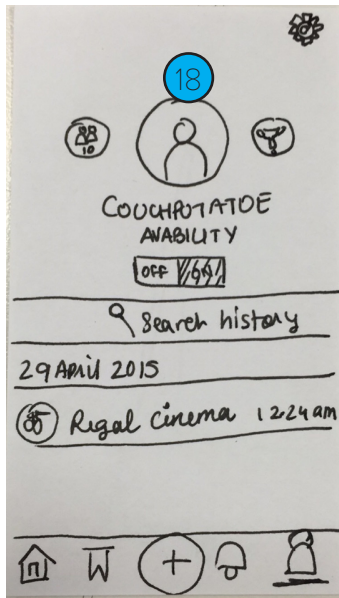 18
10
COUCHPOTATOE
AVABILITY
OFF ON
Search history
29 April 2015
Rigal Cinema 12:24 am